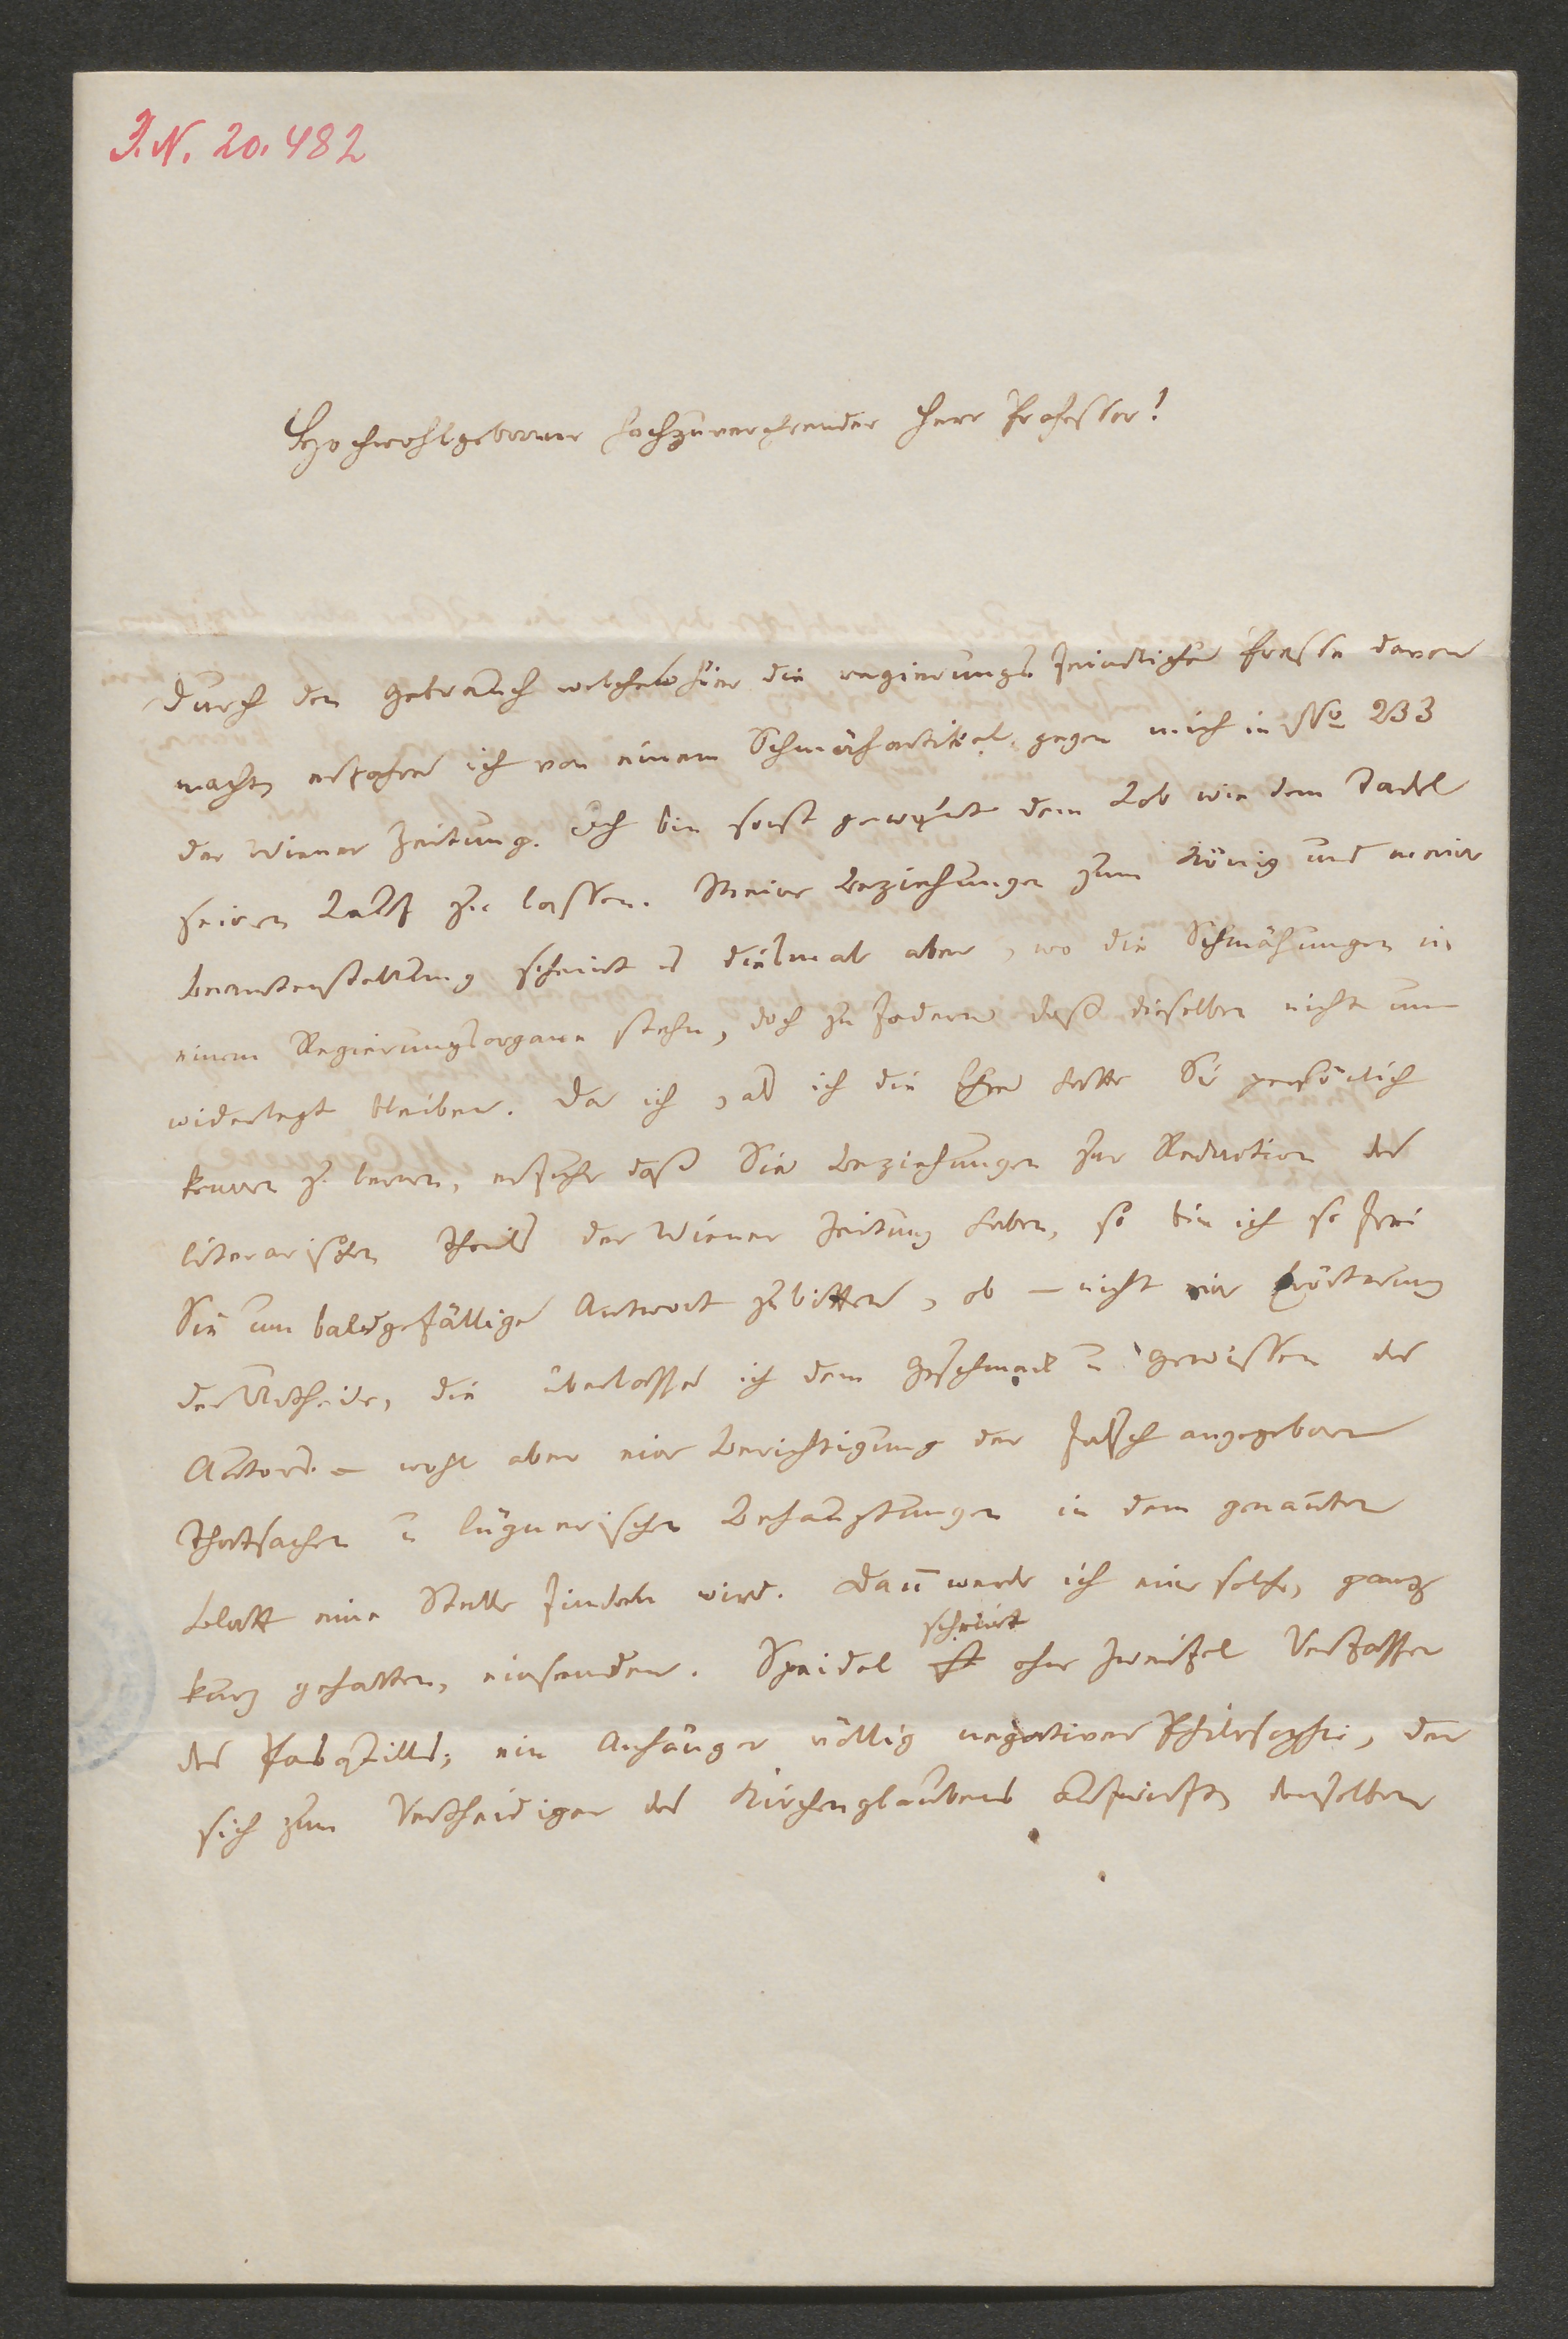 J. N. 20.482
Hochwohlgeborner hochzuverehrender Herr Professor!
Durch den Gebrauch welchen hier die regierungsfeindliche Presse davon
macht, erfahre ich von einem Schmähartikel gegen mich in No 233
der Wiener Zeitung. Ich bin sonst gewohnt dem Lob wie dem Tadel
seinen Lauf zu lassen. Meine Beziehungen zum König und meine
Beamtenstellung scheint es diesmal aber, wo die Schmähungen in
einem Regierungsorgane stehn, doch zu fodern daß dieselben nicht un
widerlegt bleiben. Da ich, als ich die Ehre hatte Sie persönlich
kennen zu lernen, erfuhr daß Sie Beziehungen zur Redaction des
literarischen Theils der Wiener Zeitung haben, so bin ich so frei
Sie um baldgefällige Antwort zu bitten, ob – nicht eine Erörterung
der Urtheile, die überlasse ich dem Geschmack u Gewissen des
Autors – wohl aber eine Berichtigung der falsch angegebenen
Thatsachen u lügnerischen Behauptungen in dem genañten
Blatt eine Stelle finden wird. Dañ werde ich eine solche, ganz
kurz gehalten, einsenden. Speidel scheint ohne Zweifel Verfasser
des Pasquills; ein Anhänger völlig negativer Philosophie, der
sich zum Vertheidiger des Kirchenglaubens aufwirft, denselben